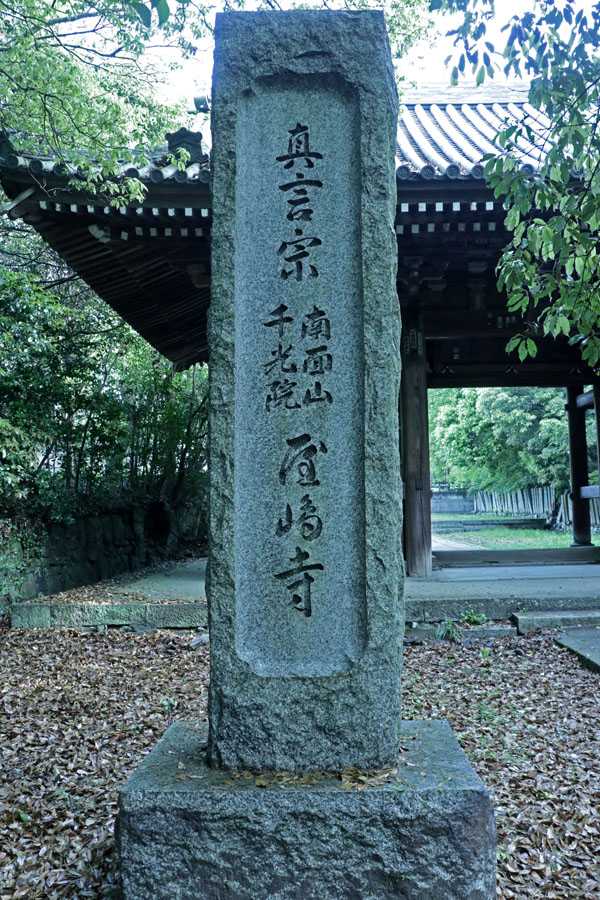 真言宗
南面山
千光院
屋嶋寺